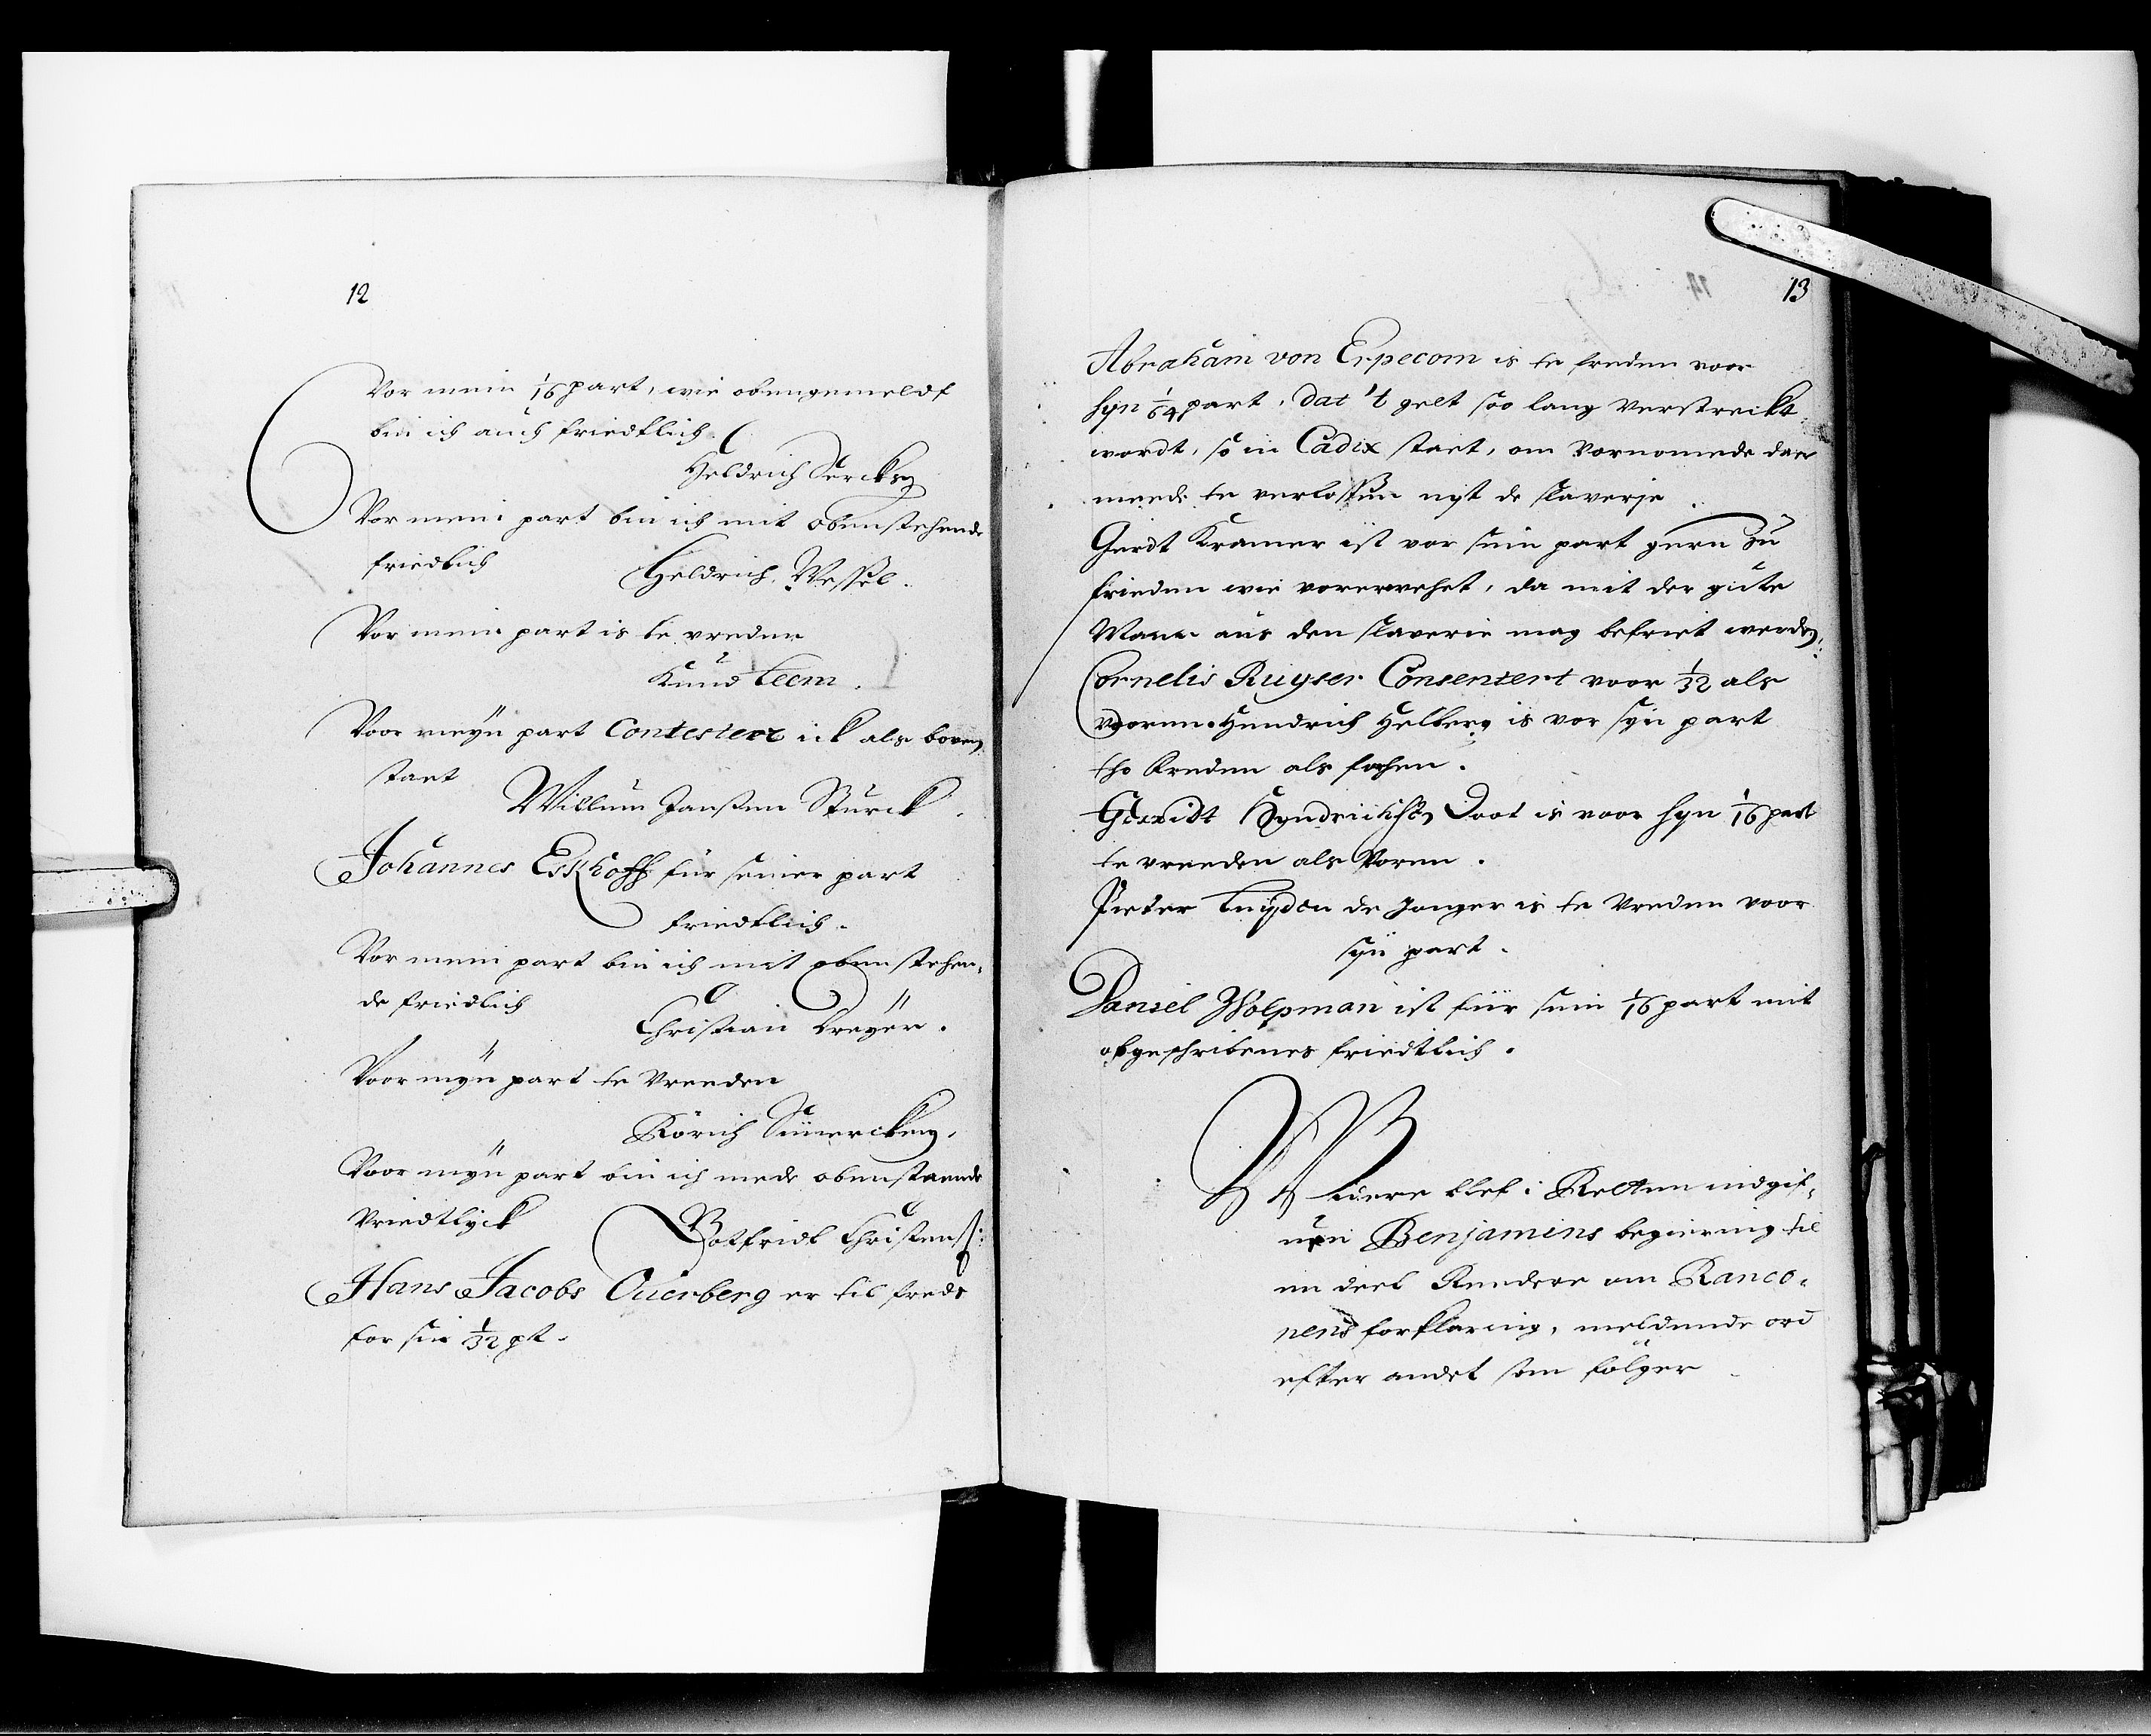 12
Vor mein 1/16 part, wie obengemeldt
bin ich auch friedtlich
Heldrich Sercksen
Vor mein part bin ich mit obenstehende
friedlich Heldrich Wessel.
Vor mein part is te vreden
Knud Leem.
Voor meyn part Contesteer ick als boven
staet
Willum Janssen Sturck.
Johannes Eskhoff für seiner part
friedtlich.
Vor mein part bin ich mit obenstehen,
de friedlich
Christian Dreyer.
Voor myn part te vreeden
Rörich Sünercksen.
Voor myn part bin ich mede obenstaende
vriedtlyck Gotfridt Christenss:
Hans Jacobs Ouerberg er til freds
for sin 1/32 pt.
13
Abraham von Erpecom is te freden voor
syn 1/64 part, dat 't gelt soo lang verstreckt
wordt, so in Cadix staet, om vornomede daer
meede te verlossen uyt de slaverje.
Gerdt Kramer ist vor sein part gern zu
frieden wie vorerwehet, da mit der gute
Mann aus den slaverie mag befriet werden.
Cornelis Ruyser Consentert voor 1/32 als
vooren. Hendrich Helberg is vor syn part
tho freden als
Gerridt Hendrichsen Doot is voor syn 1/16 part
te vreeden als voren.
Pieter Luyden de Jonger is te vreden voor
syn part.
Daniel Wolpman ist für sein 1/16 part mit
obgeschribenes friedtlich.
Widere blef i Retten indgif,
uen Benjamins begiering til
en deel Reedere om Ranco,
nens forklaring, meldende ord
efter andet som fölger